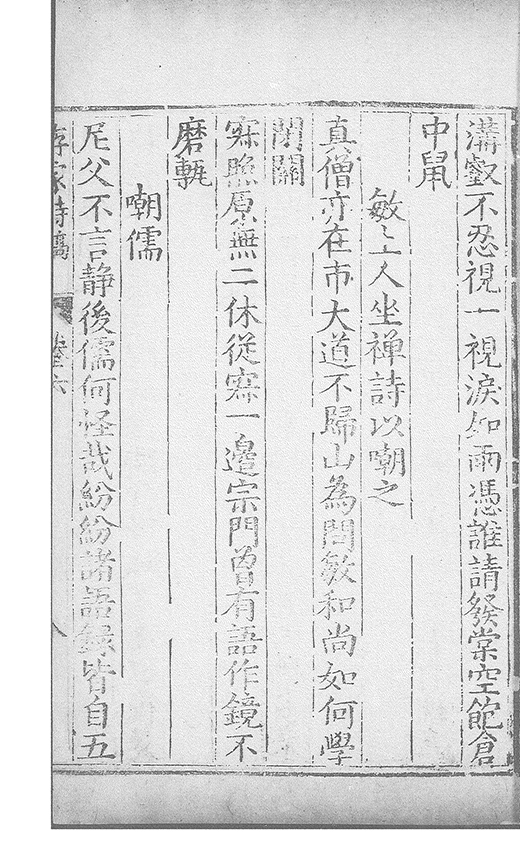 溝壑不忍視一視淚如雨憑誰請發棠空飽倉
中鼠
敏上人坐禅詩以嘲之
真僧亦在市大道不歸山為問敏和尚如何學
閉關
寂照原無二休從寂一邊宗門曾有語作鏡不
磨甎
嘲儒
尼父不言静後儒何怪哉紛紛諸語録皆自五